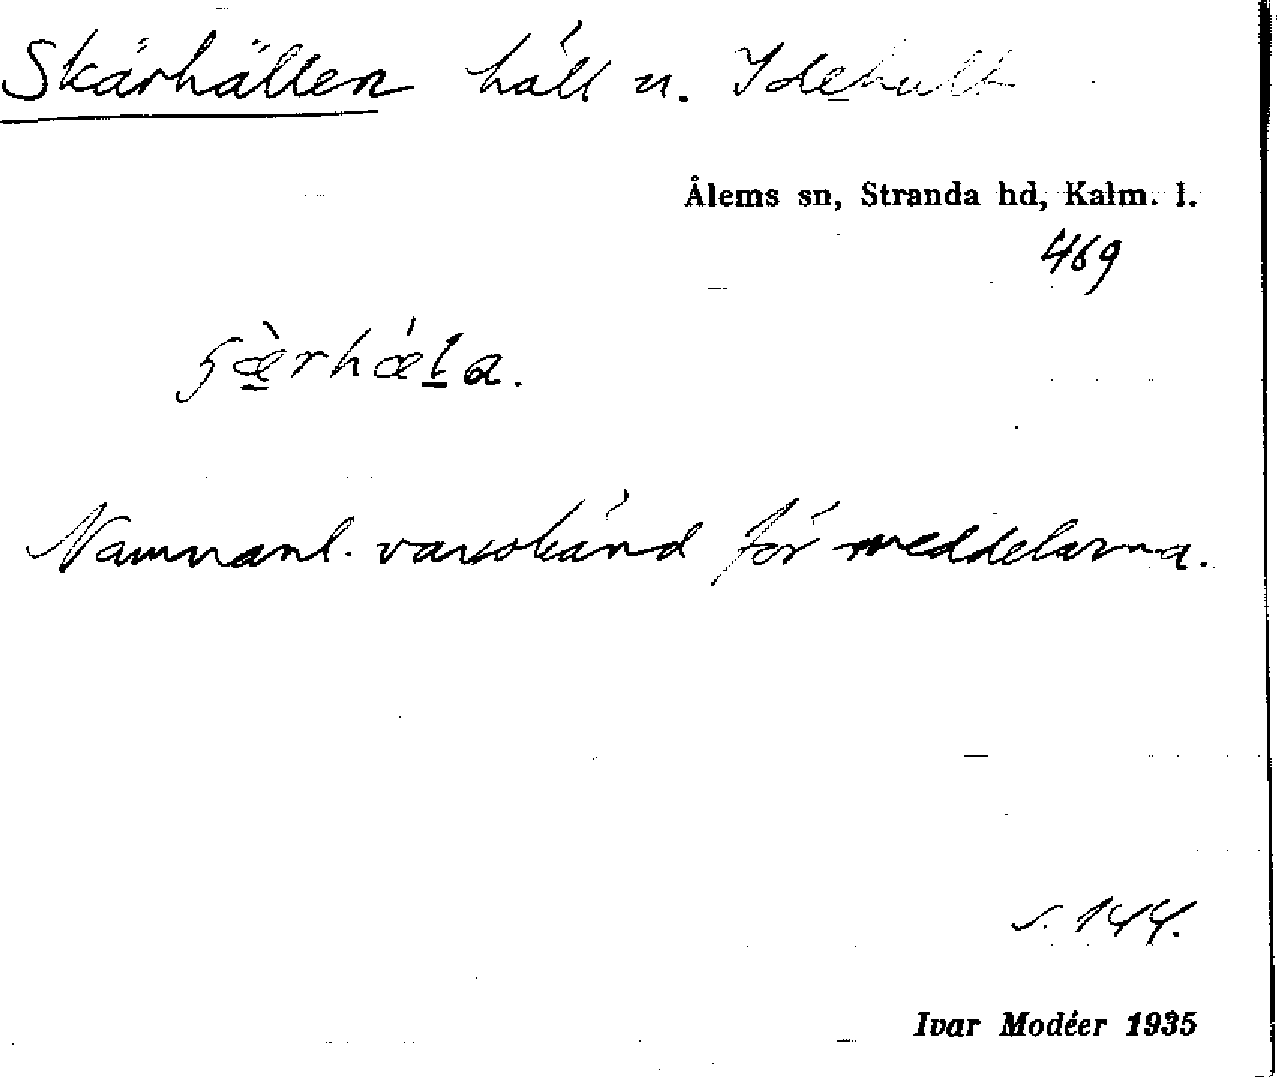 Skärhällen häll n. Idehult
Ålems sn, Stranda hd, Kalm. l.
469
Namnanl. varsokänd för meddelarna.
s. 144.
Ivar Modéer 1935